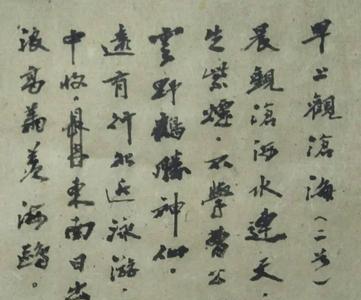 早上觀滄海(二首)
晨觀滄海水連天
生紫煙.不學曹公
雲野鶴勝神仙。
遠有行船近泳游.
中收.東南日出
浪高羨海鷗。